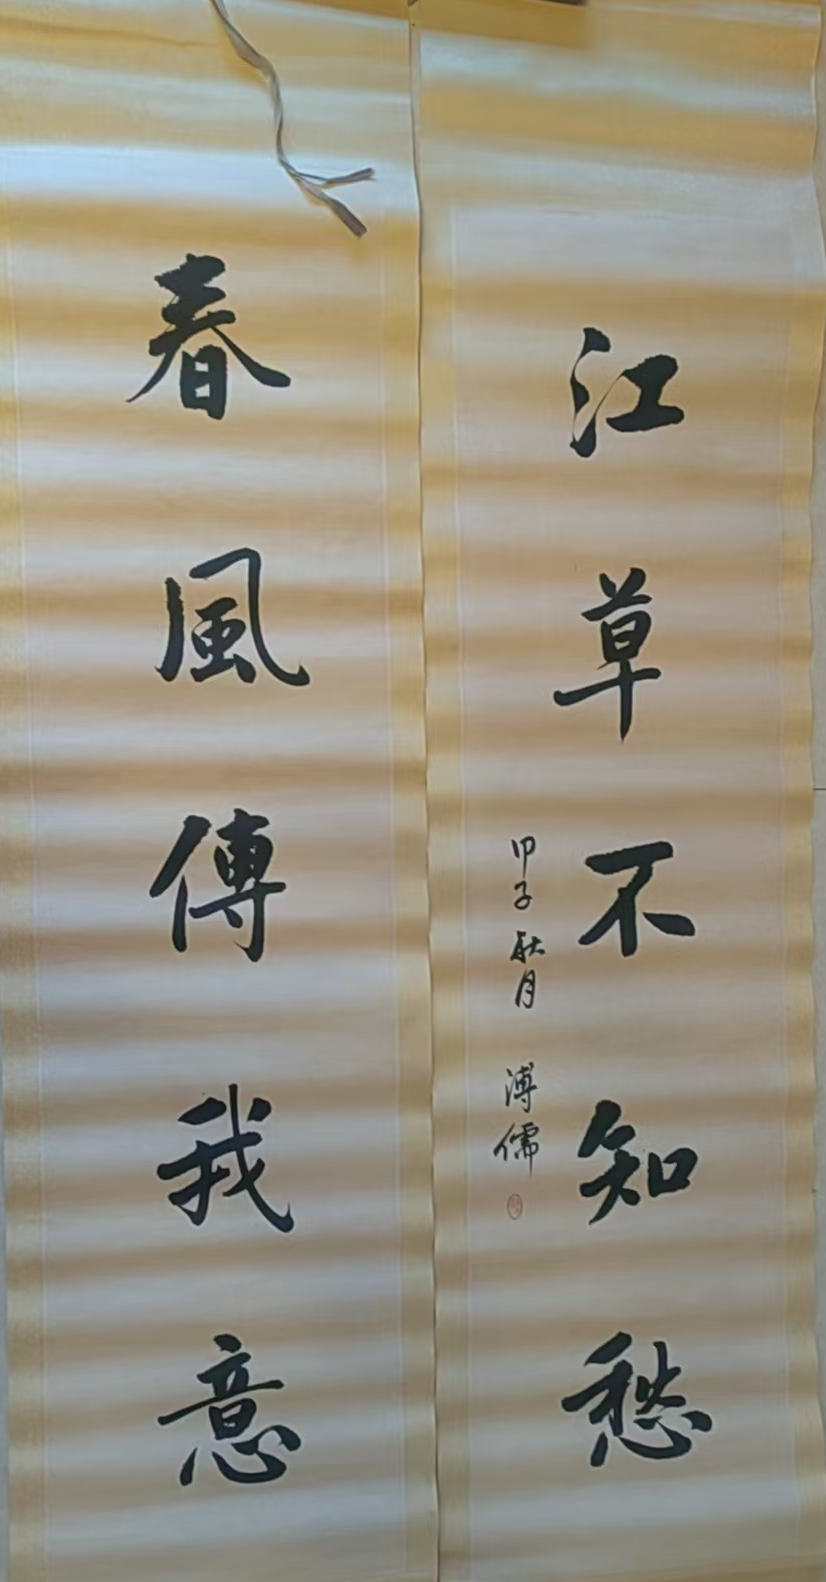 春風傳我意
江草不知愁
甲子秋月 溥儒